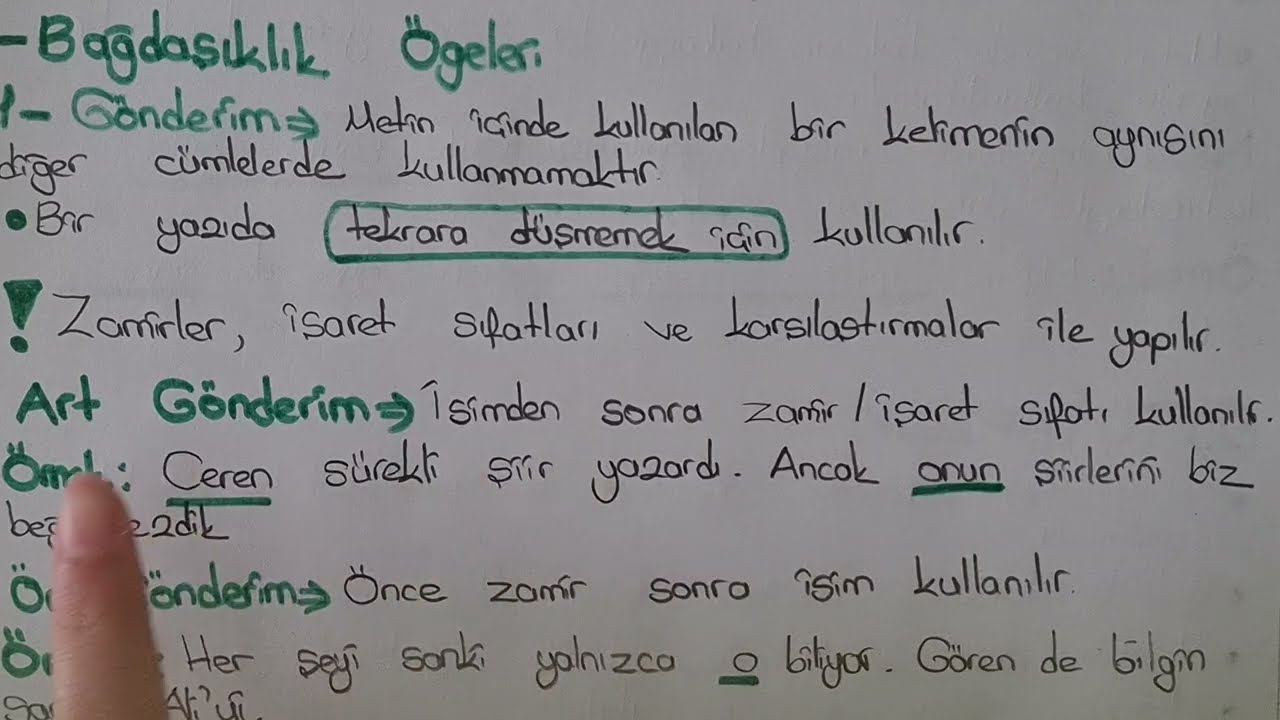 - Bağdaşıklık Ögeleri
1- Gönderim => Metin içinde kullanılan bir kelimenin aynısını
diğer cümlelerde kullanmamaktır.
• Bir yazıda tekrara düşmemek için kullanılır.
! Zamirler, işaret sıfatları ve karşılaştırmalar ile yapılır.
Art Gönderim => İsimden sonra zamir / işaret sıfatı kullanılır.
Örnek: Ceren sürekli şiir yazardı. Ancak onun şiirlerini biz
Gönderim => Önce zamir sonra isim kullanılır.
Her şeyi sanki yalnızca o biliyor. Gören de bilgin
Ali'yi.